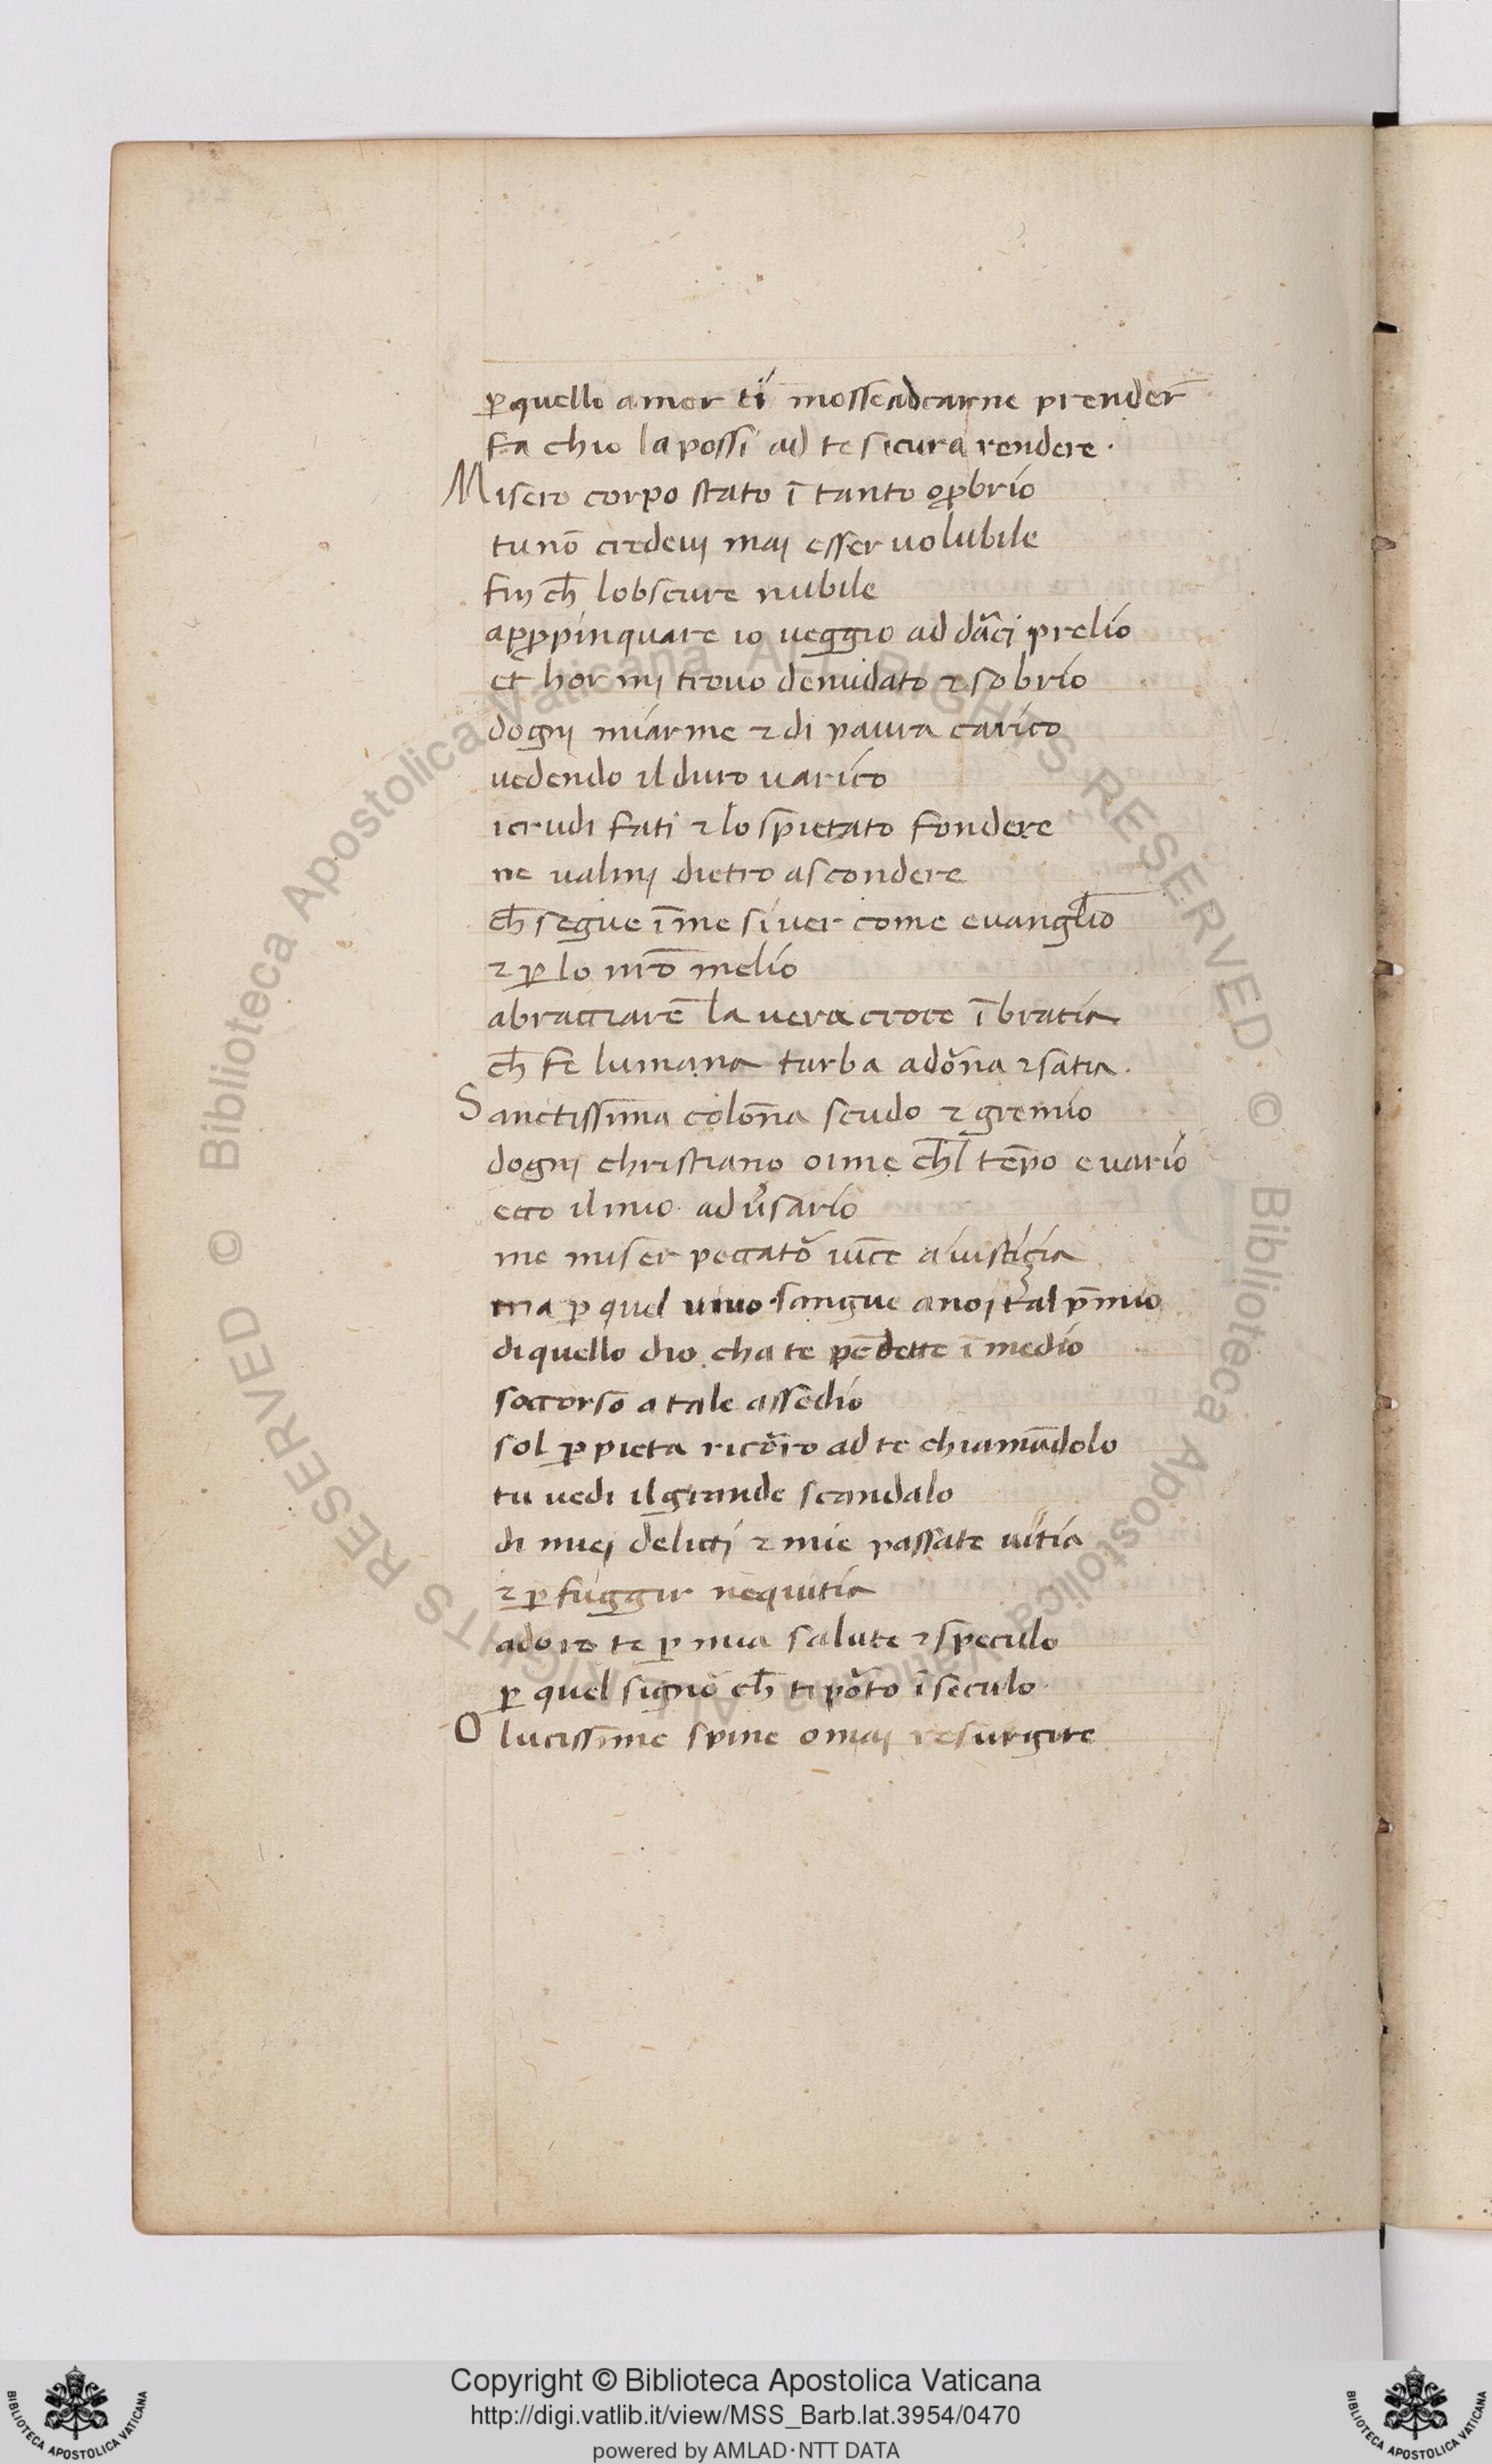 ꝑquello amor ti mosse adcarne prender̄
fa chio la possi ad te sicura rendere·
Misero corpo stato ī tanto oꝓbrio
tu nō credevi maj esser uolubile
fin ch̄ lobscure nubile
apꝓpinquare io ueggio ad dāci prelio
et hor mj trouo denudato ⁊ sobrio
dognj mie arme ⁊ di paura carico
uedendo il duro uarico
i crudi fati ⁊ lo spietato fondere
ne ualmj dietro ascondere
ch̄ segue ī me si uer come evangl̄io
⁊ ꝑ lo mīo melio
abracciarē la uera croce ī bratia
ch̄ fe lumana turba adōna ⁊ satia.
Sanctissīma colōna scudo ⁊ gremio
dognj christiano oime ch̄l tēpo e uario
ecco il mio aduˀsario
me miser peccatō uīce a iusticia
ma ꝑ quel uiuo sangue a noj tal p̄mio
di quello dio cha te pēdette ī medio
soccorso a tale assedio
sol ꝑ pieta ricōro ad te chiamādolo
tu uedi il grande scandalo
di miej delicti ⁊ mie passate uitia
⁊ ꝑ fuggir nequitia
adoro te ꝑ mia salute ⁊ speculo
ꝑ quel signō ch̄ ti pōto ī seculo
O lucissīme spine omaj resurgite
Copyright © Biblioteca Apostolica Vaticana
http://digi.vatlib.it/view/MSS_Barb.lat.3954/0470
powered by AMLAD·NTT DATA
BIBLIOTECA APOSTOLICA VATICANA
BIBLIOTECA APOSTOLICA VATICANA
© Biblioteca Apostolica Vaticana ALL RIGHTS RESERVED
© Biblioteca Apostolica Vaticana ALL RIGHTS RESERVED